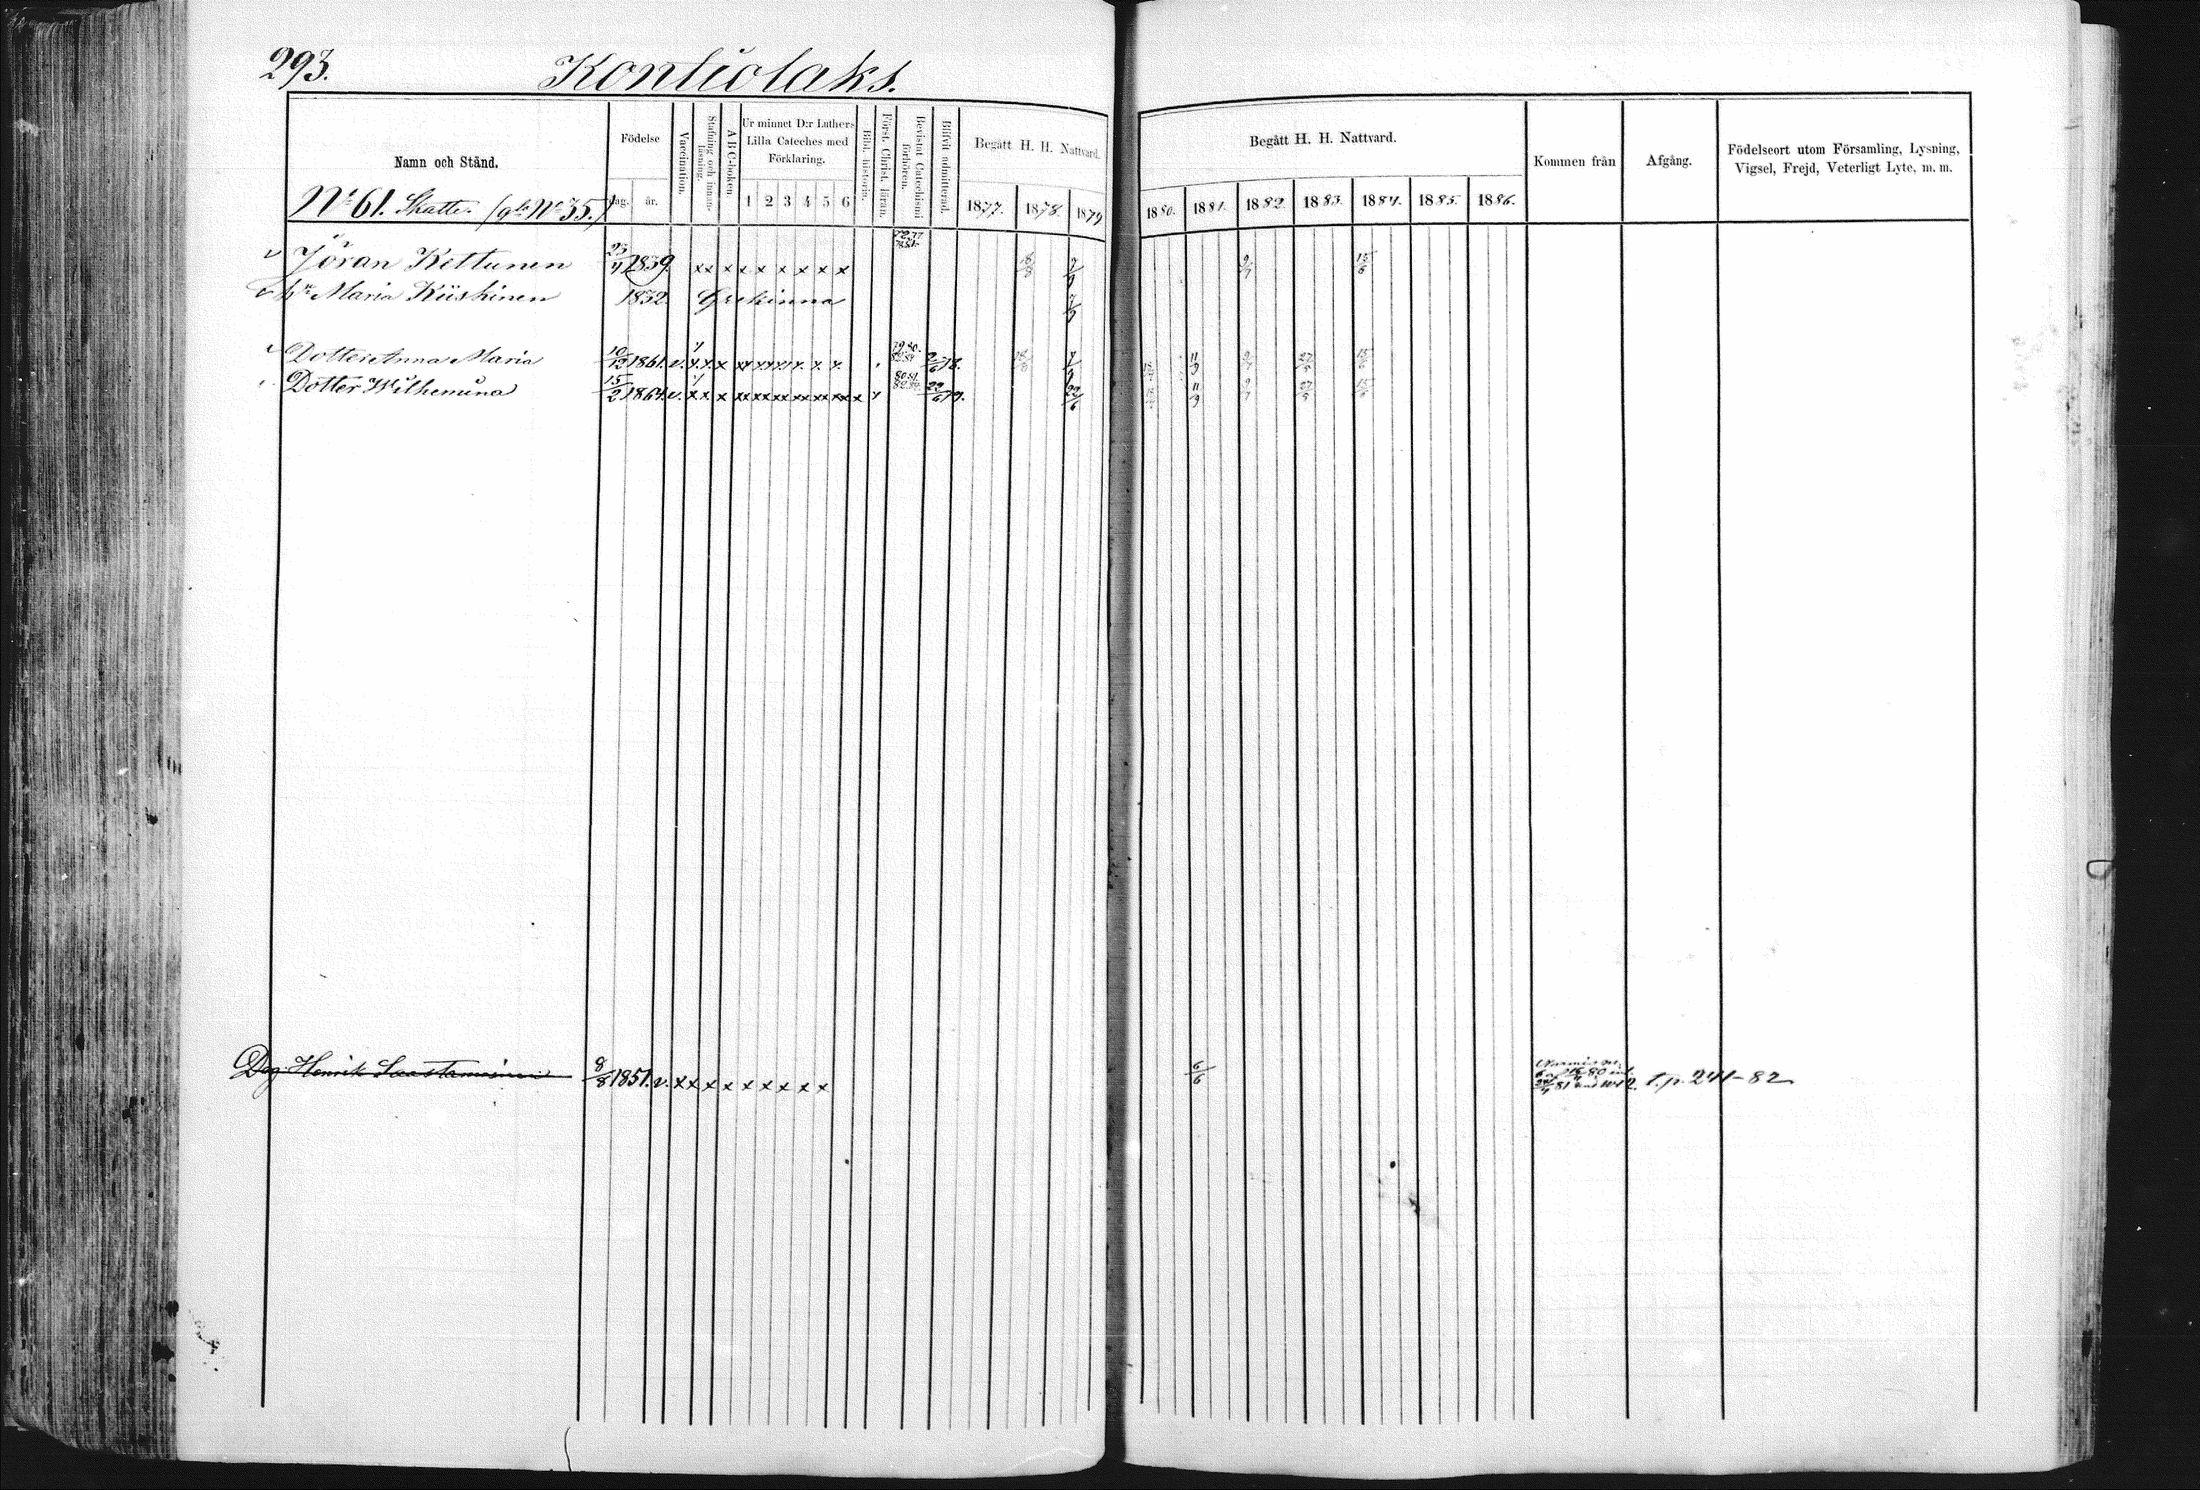 293.
Kontiolaks.
Namn och Stånd.
Födelse
dag. år.
Vaccination.
Stafning och innanläsning.
A B C-boken.
Ur minnet D:r Luthers Lilla Cateches med Förklaring.
1 2 3 4 5 6
Bibl. historia.
Först. Christ. läran.
Bevistat Catechismi förhören.
Blifvit admitterad.
Begått H. H. Nattvard.
1877. 1878. 1879
Begått H. H. Nattvard.
1880. 1881. 1882. 1883. 1884. 1885. 1886.
Kommen från
Afgång.
Födelseort utom Församling, Lysning, Vigsel, Frejd, Veterligt Lyte, m. m.
No 61. Skatte. (gla No 35.)
Jöran Kettunen 1839. x x x x x x x x x 9/7 15/6
h:u Maria Kiiskinen 1832. Grekinna
Dotter Anna Maria 10/12 1861. v. 11/9 9/7 27/5 15/6
Dotter Wilhemina 15/2 1864. v. 22/6 79. 22/6 11/9 9/7 27/5 15/6
Drg. Henrik Saastamoinen 9/8 1851. v. x x x x x x x x x 6/6 t. p. 241-82